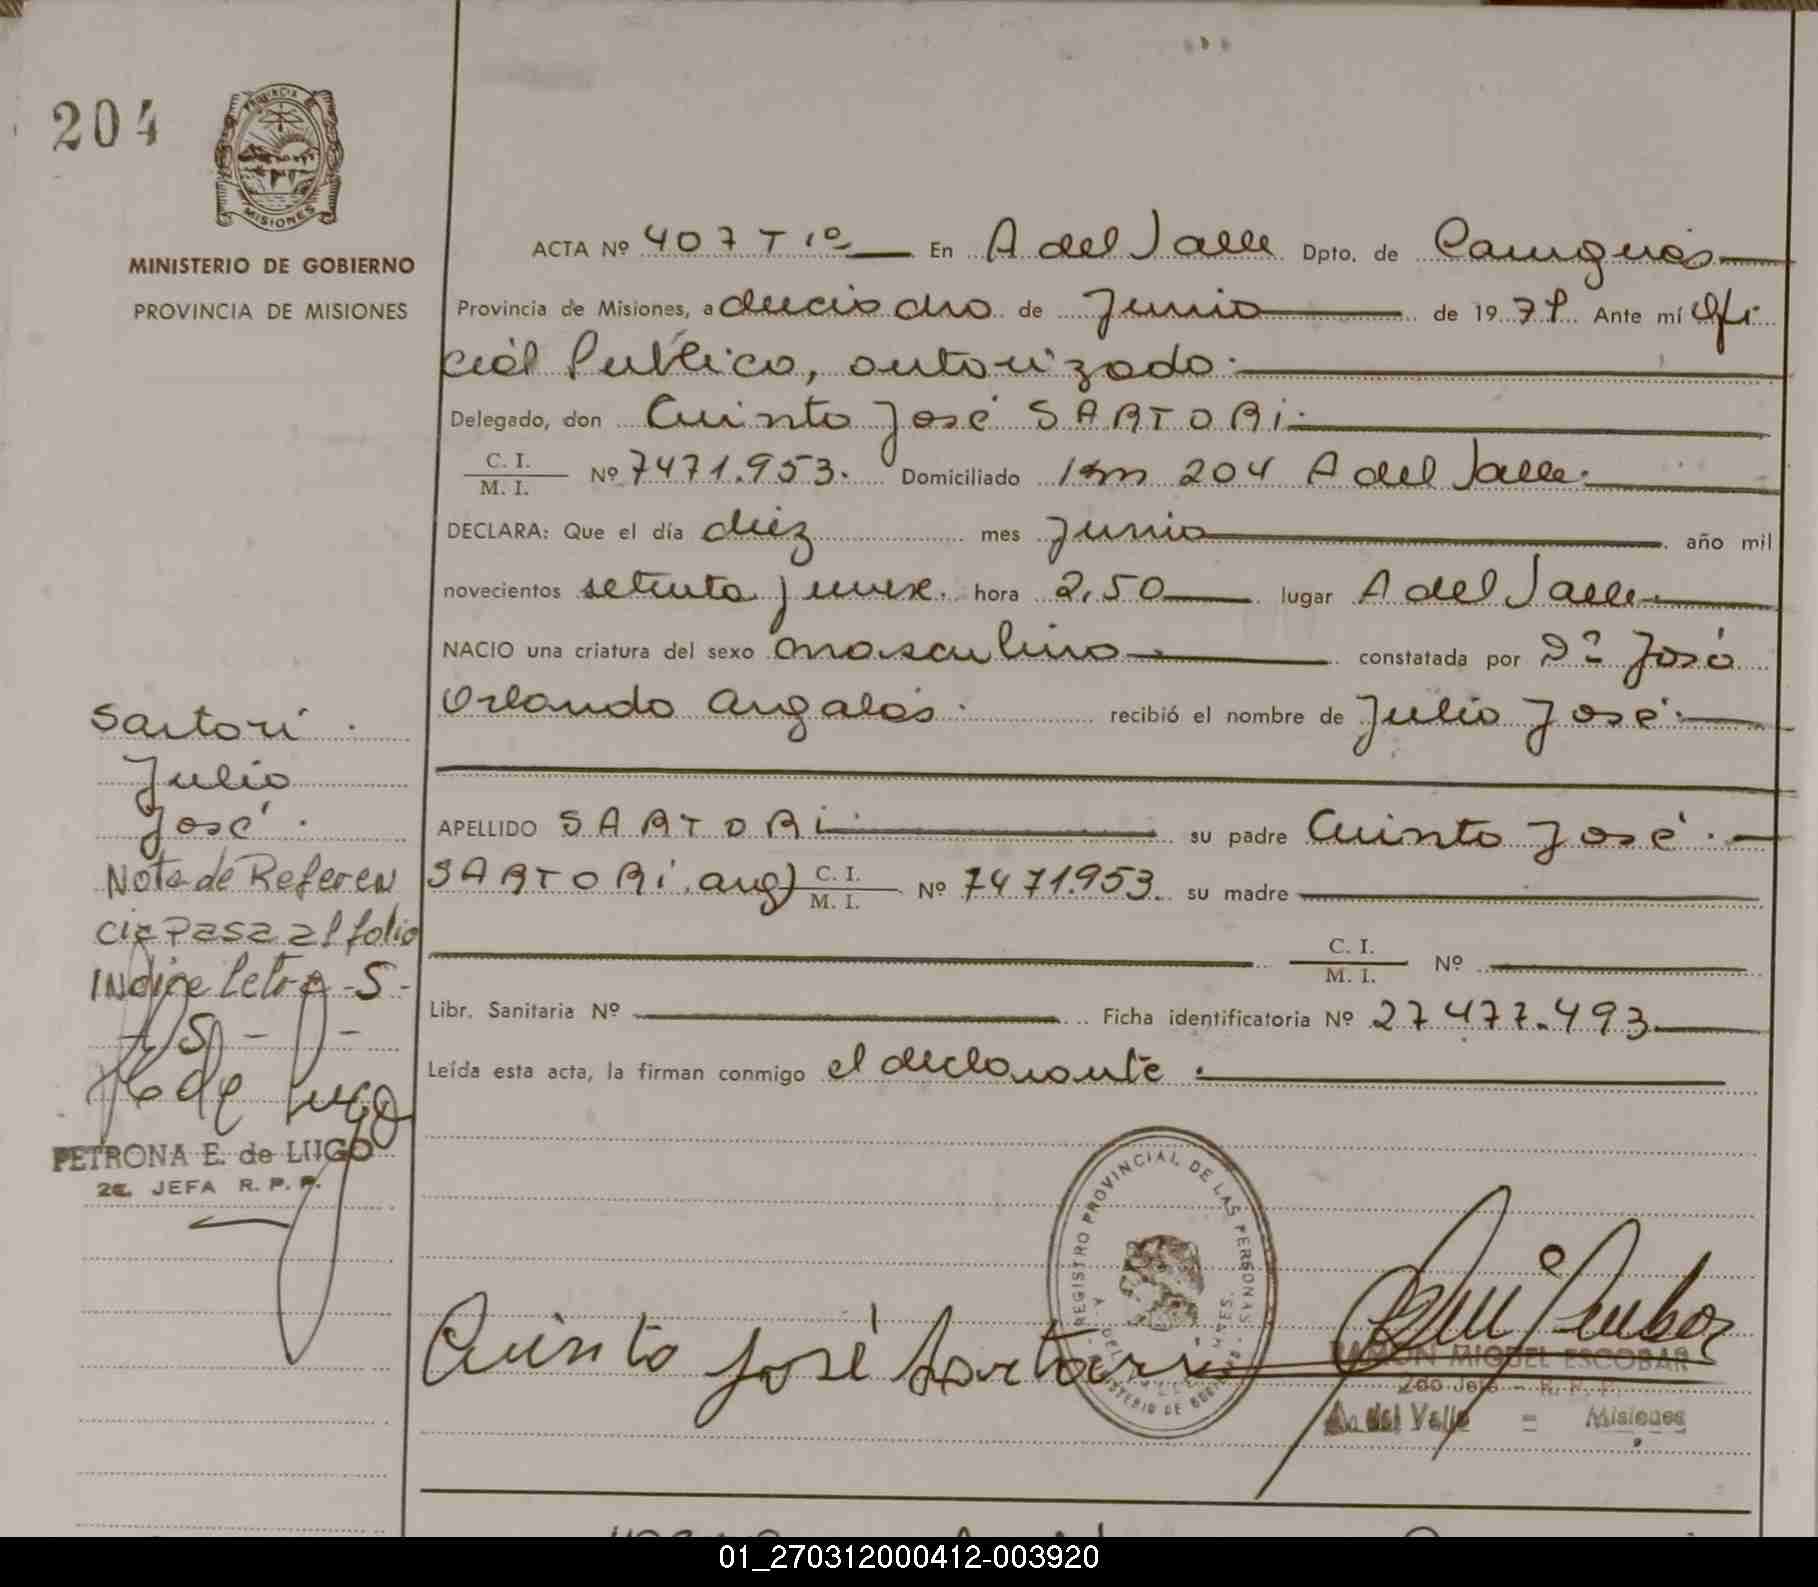 204
PROVINCIA DE
MISIONES
MINISTERIO DE GOBIERNO
PROVINCIA DE MISIONES
ACTA Nº 407 T 1º En A del Valle Dpto. de Cainguás
Provincia de Misiones, a dieciocho de Junio de 1979 Ante mí Ofi
cial Publico, autorizado.
Delegado, don Cuinto José SARTORI.
C. I.
M. I. Nº 7471.953. Domiciliado Km 204 A del Valle.
DECLARA: Que el día diez mes Junio año mil
novecientos setenta y nueve. hora 2,50 lugar A del Valle
NACIO una criatura del sexo masculino constatada por Dº José
Orlando Argalás. recibió el nombre de Julio José.
APELLIDO SARTORI su padre Cuinto José.
SARTORI. arg) C. I.
M. I. Nº 7471.953. su madre
C. I.
M. I. Nº
Libr. Sanitaria Nº Ficha identificatoria Nº 27477.493
Leída esta acta, la firman conmigo el declarante.
Sartori.
Julio
José.
Nota de Referen
cia Pasa al folio
Indice letra -S-
PETRONA E. de LUGO
JEFA R. P. P.
REGISTRO PROVINCIAL DE LAS PERSONAS
Cuinto José Sartori
RAMON MIGUEL ESCOBAR
2do Jefe - R. P. P.
A. del Valle = Misiones
01_270312000412-003920